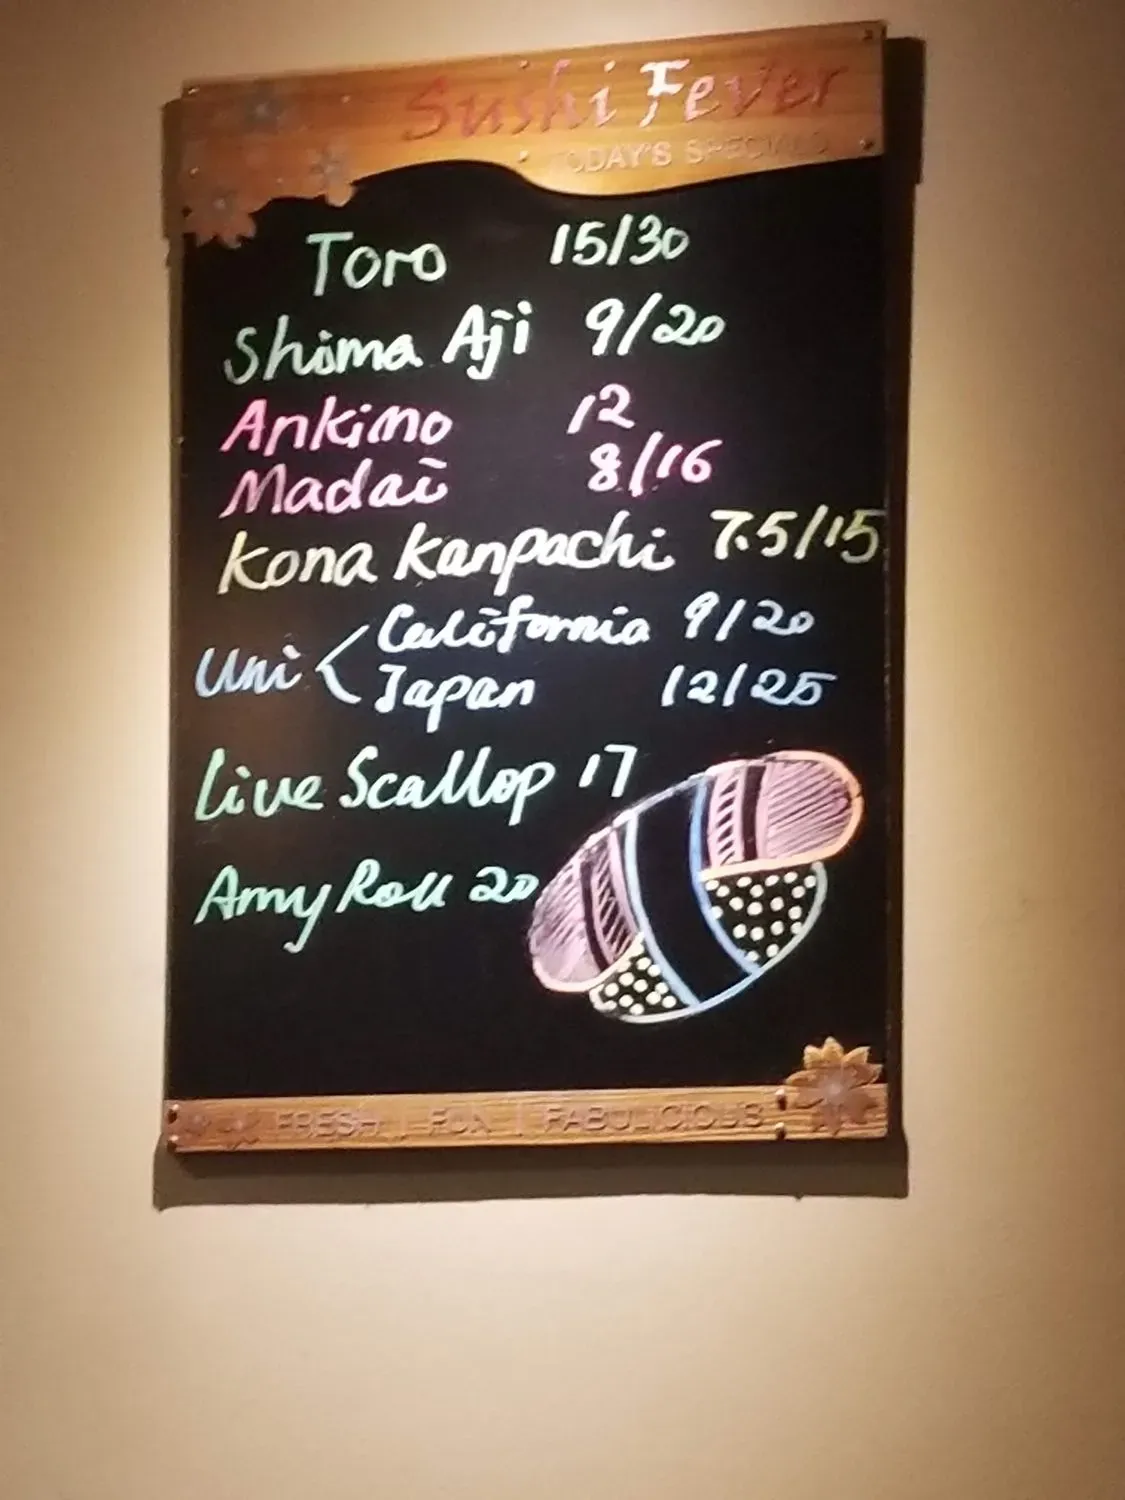 Sushi Fever
TODAY'S SPECIALS
Toro 15/30
Shima Aji 9/20
Ankimo 12
Madai 8/16
Kona Kanpachi 7.5/15
Uni < California 9/20
Japan 12/25
Live Scallop 17
Amy Roll 20
FRESH | FUN | FABULICIOUS